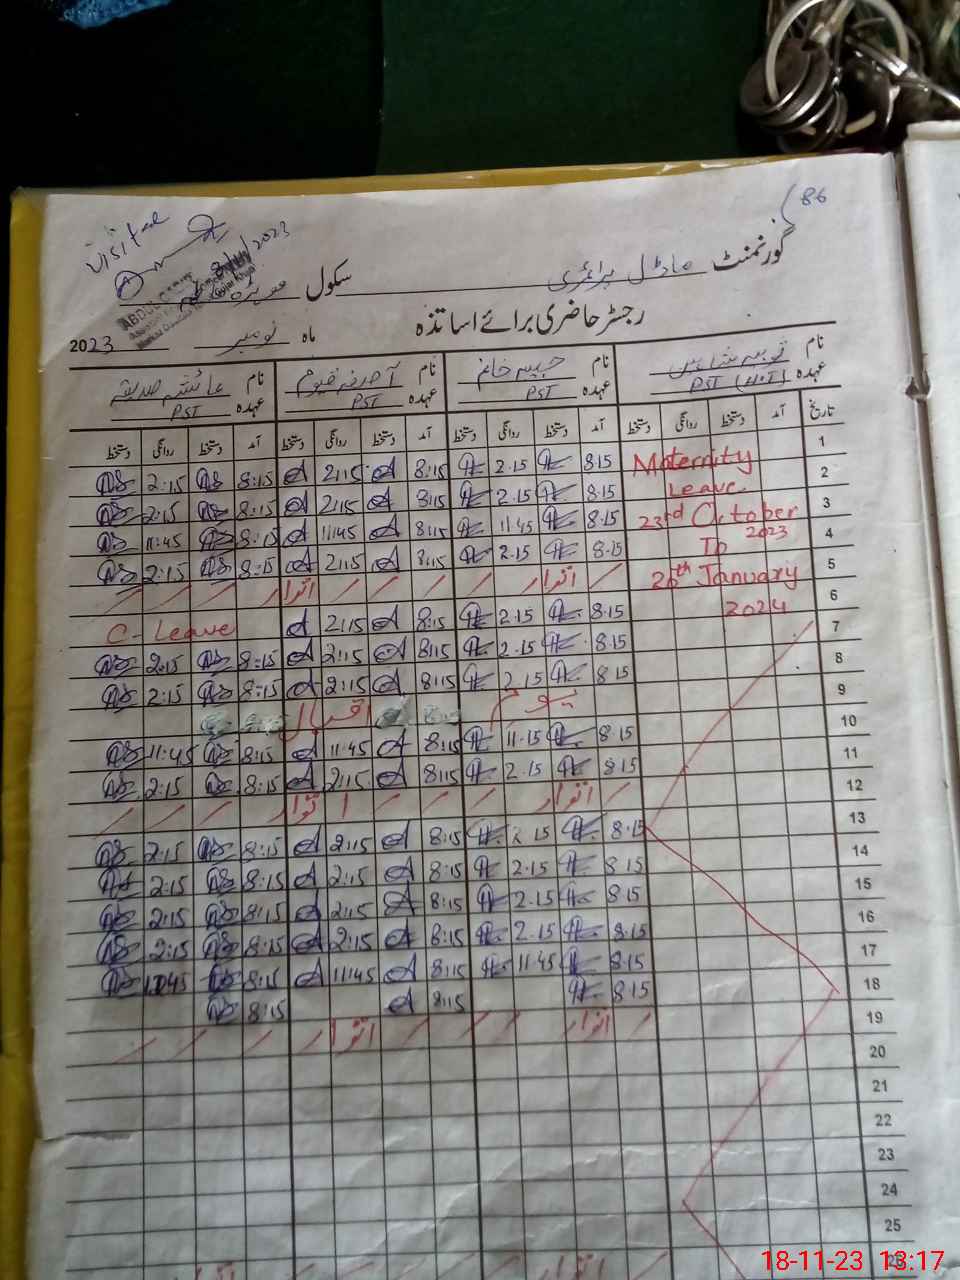 86
Visited
2023
گورنمنٹ ماڈل پرائمری سکول
رجسٹر حاضری برائے اساتذہ
ماہ نومبر 2023
نام
عہدہ PST (H.T)
نام خانم
عہدہ PST
نام
عہدہ PST
نام عائشہ صدیقہ
عہدہ PST
تاریخ آمد دستخط روانگی دستخط آمد دستخط روانگی دستخط آمد دستخط روانگی دستخط آمد دستخط روانگی دستخط
1 Maternity 8.15 2.15 8:15 2:15 8:15 2:15
2 Leave 8.15 2.15 8:15 2:15 8:15 2:15
3 23rd October 2023 8.15 11.45 8:15 11:45 8:15 11:45
4 To 8.15 2.15 8:15 2:15 8:15 2:15
5 20th January اتوار اتوار
6 2024 8.15 2.15 8:15 2:15 C-Leave
7 8.15 2.15 8:15 2:15 8:15 2:15
8 8.15 2.15 8:15 2:15 8:15 2:15
9 یوم اقبال
10 8.15 11.15 8:15 11:45 8:15 11:45
11 8.15 2.15 8:15 2:15 8:15 2:15
12 اتوار اتوار
13 8.15 2.15 8:15 2:15 8:15 2:15
14 8.15 2.15 8:15 2:15 8:15 2:15
15 8.15 2.15 8:15 2:15 8:15 2:15
16 8.15 2.15 8:15 2:15 8:15 2:15
17 8.15 11.45 8:15 11:45 8:15
18 8.15 8:15 8:15
19 اتوار اتوار
20
21
22
23
24
25
26
18-11-23 13:17